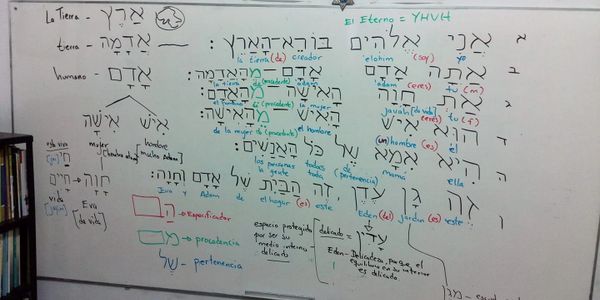 La Tierra - אֶרֶץ
El Eterno = YHVH
א אֲנִי אֱלֹהִים בּוֹרֵא-הָאָרֶץ:
la tierra (de) creador 'elohim (soy) yo
tierra - אֲדָמָה
ב אַתָּה אָדָם אָדָם-מֵהָאֲדָמָה:
la tierra de (procedente) adam 'adam (eres) tu (m)
humano - אָדָם
אַתְּ חַוָּה הָאִשָּׁה מֵהָאָדָם:
el humano de (procedente) la mujer javah [da vida] (eres) tu (f)
ד הוּא אִישׁ הָאִישׁ מֵהָאִשָּׁה:
de la mujer de (procedente) el hombre (un) hombre (es) el
אִישׁ אִשָּׁה
mujer hombre
ה הִיא אִמָּא שֶׁל כָּל הָאֲנָשִׁים:
las personas todas de mamá ella
la gente toda (pertenencia)
esta viva
חַי
ו זֶה גַּן עֵדֶן, זֶה הַבַּיִת שֶׁל אָדָם וְחַוָּה:
Eva y Adam de el hogar (es) este Eden (del) jardin (es) este
חַיִּים → חַוָּה
vida Eva
[da vida]
הָ → Especificador
מֵ → procedencia
שֶׁל - pertenencia
espacio protegido
por ser su
medio interno
delicado
delicado =
עֵדֶן
Eden - Delicadeza, porque el
equilibrio en su interior
es delicado